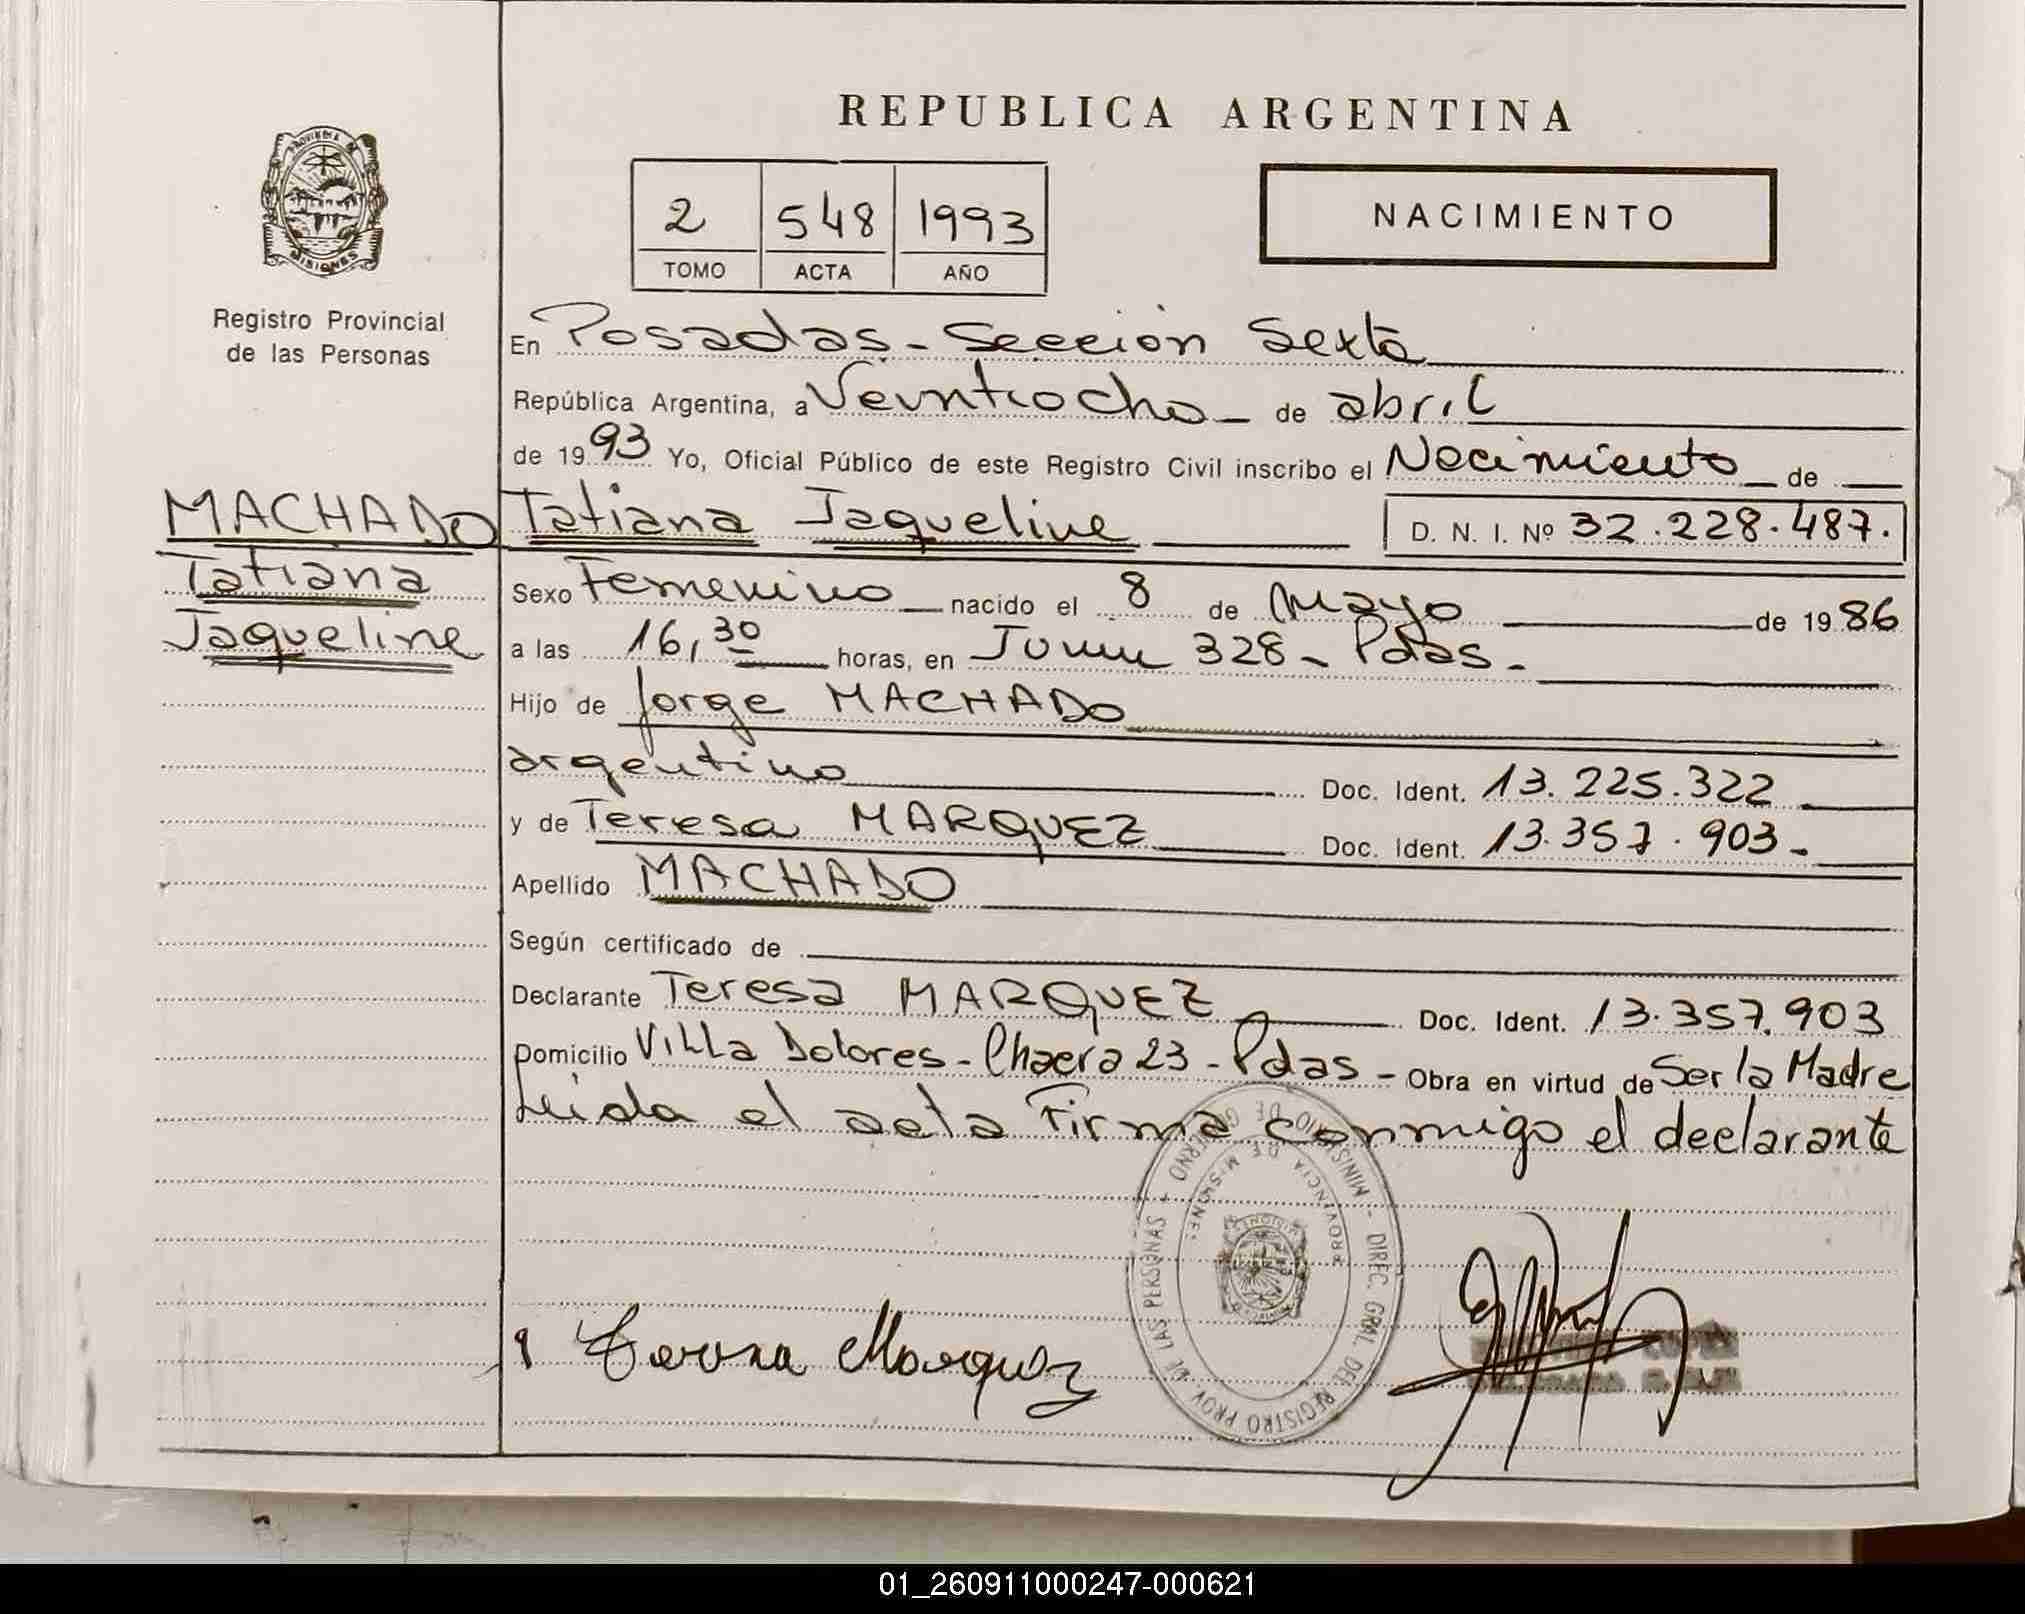 REPUBLICA ARGENTINA
PROVINCIA DE MISIONES
2 548 1993
TOMO ACTA AÑO
NACIMIENTO
Registro Provincial
de las Personas
En Posadas - Sección Sexta
República Argentina, a Veintiocho - de abril
de 1993 Yo, Oficial Público de este Registro Civil inscribo el Nacimiento de
MACHADO
Tatiana
Jaqueline
Tatiana Jaqueline D. N. I. Nº 32.228.487.
Sexo Femenino nacido el 8 de Mayo de 1986
a las 16,30 horas, en Junin 328 - Pdas -
Hijo de Jorge MACHADO
argentino Doc. Ident. 13.225.322
y de Teresa MARQUEZ Doc. Ident. 13.357.903 -
Apellido MACHADO
Según certificado de
Declarante Teresa MARQUEZ Doc. Ident. 13.357.903
Domicilio Villa Dolores - Chacra 23 - Pdas - Obra en virtud de Ser la Madre
Leida el acta Firma conmigo el declarante
MINISTERIO DE GOBIERNO - DIREC. GRAL. DEL REGISTRO PROV. DE LAS PERSONAS
PROVINCIA DE MISIONES
Teresa Marquez
01_260911000247-000621